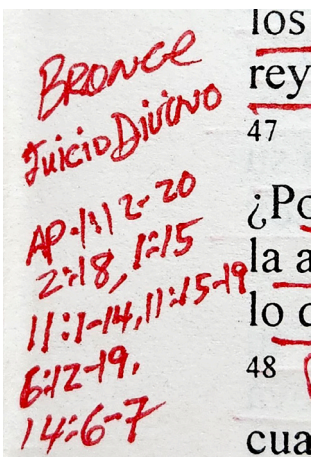 BRONCE
Juicio Divino
AP-1:12-20
2:18, 1:15
11:1-14, 11:15-19
6:12-19,
14:6-7
los
rey
47
¿Po
la a
lo
48
cua